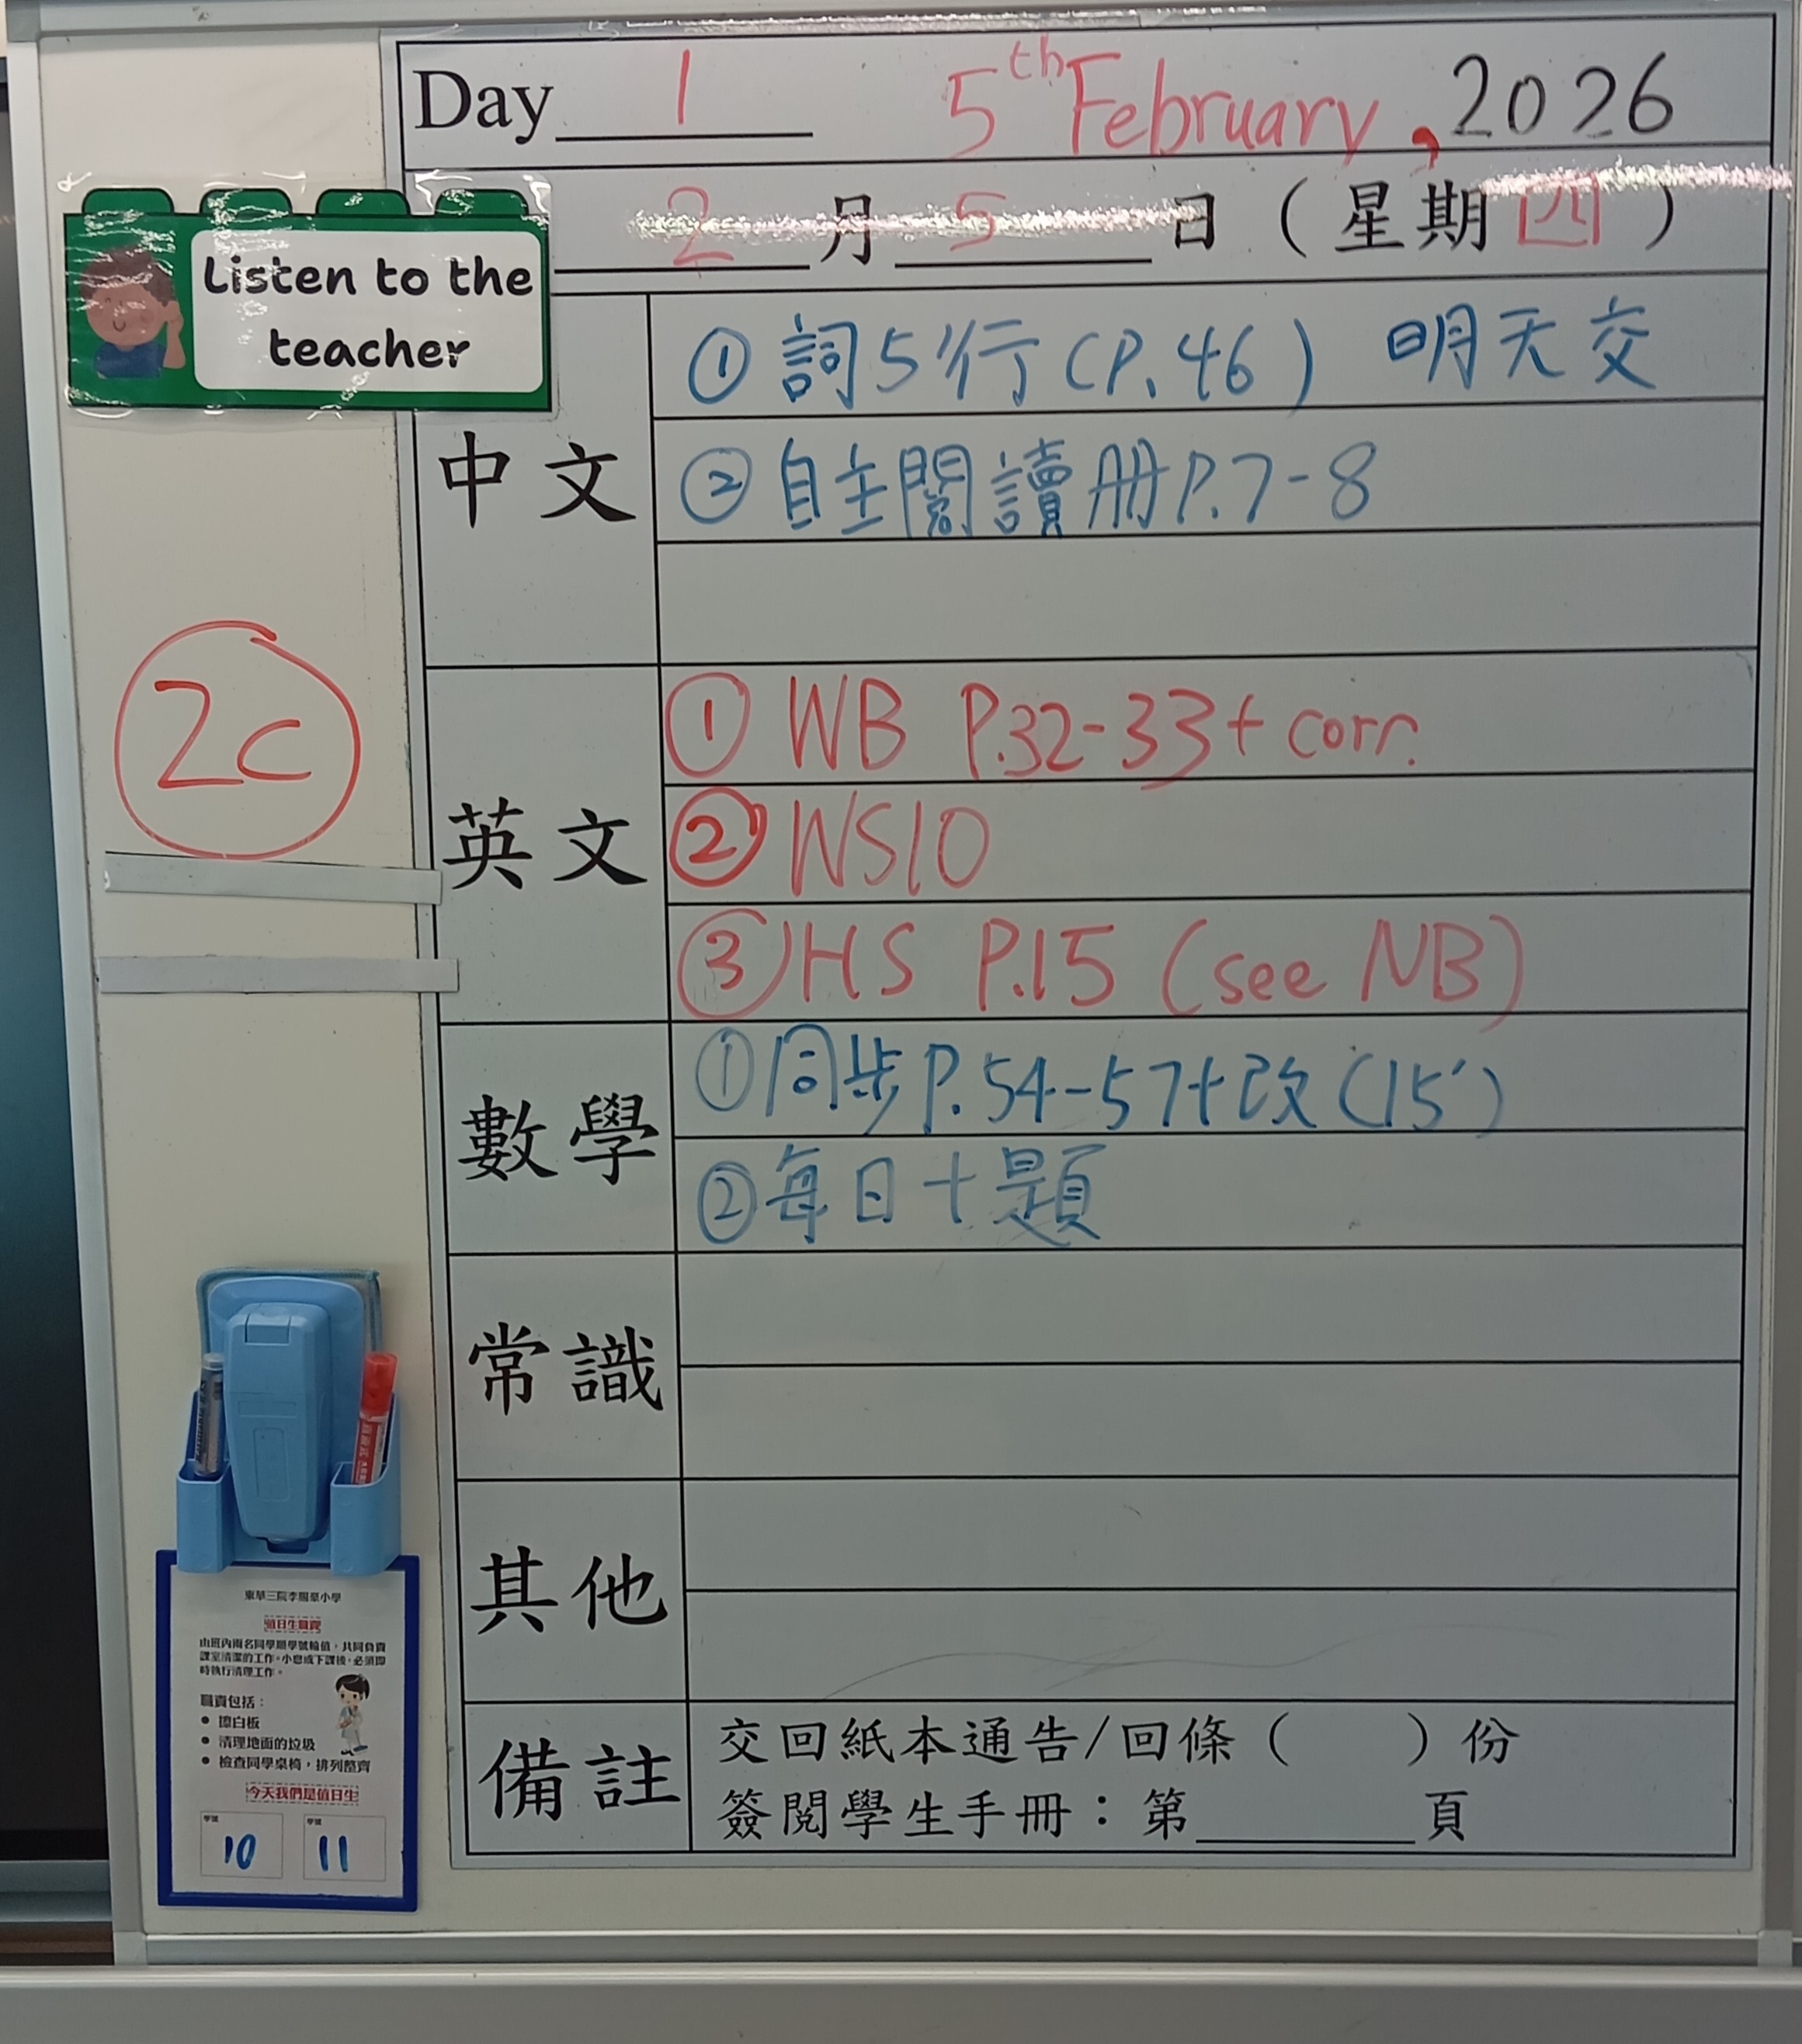 Day 1 5th February, 2026
2月5日（星期四）
Listen to the
teacher
中文
① 詞5行(P.46) 明天交
② 自主閱讀册P.7-8
2c
英文
① WB P.32-33+ corr.
② WS10
③ HS P.15 (see NB)
數學
① 同步P.54-57+改(15')
② 每日十題
常識
其他
備註
交回紙本通告/回條（ ）份
簽閱學生手冊：第______頁
值日生職責
由班內兩名同學順學號輪值，共同負責
課室清潔的工作。小息或下課後，必須即
時執行清理工作。
職責包括：
• 擦白板
• 清理地面的垃圾
• 檢查同學桌椅，排列整齊
今天我們是值日生
學號 學號
10 11